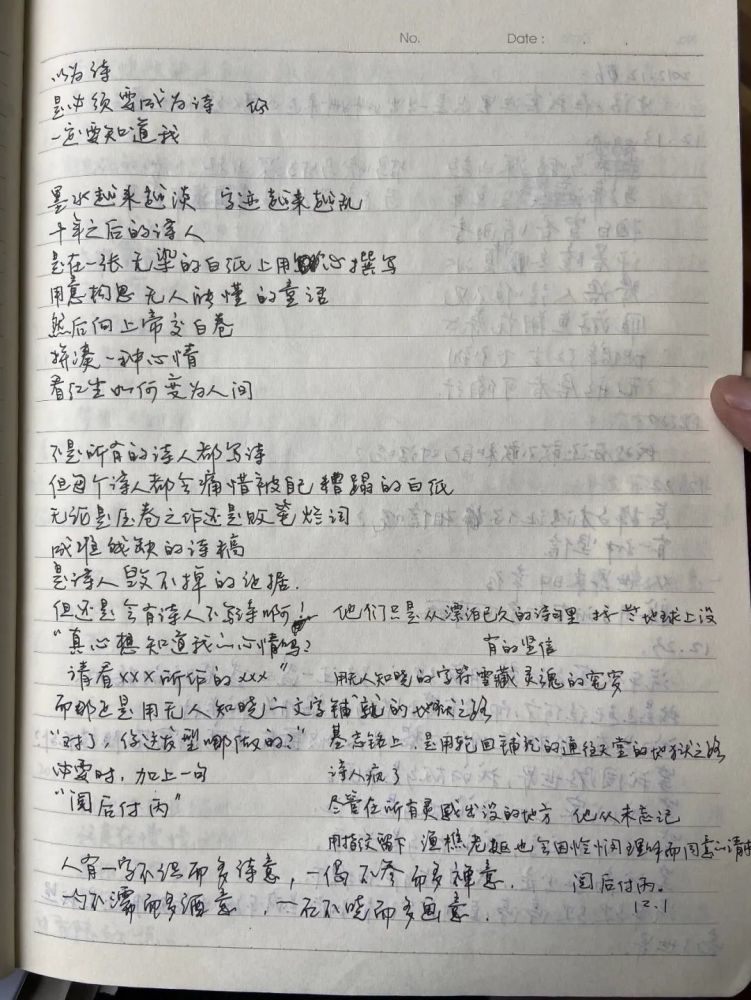 No. Date:
以为诗
是必须要成为诗 你
一定要知道我
墨水越来越淡 字迹越来越乱
千年之后的诗人
是在一张无染的白纸上用心撰写
用意构思无人能懂的童话
然后向上帝交白卷
拼凑一种心情
看红尘如何变为人间
不是所有的诗人都写诗
但每个诗人都会痛惜被自己糟蹋的白纸
无论是压卷之作还是败笔烂词
成堆残缺的诗稿
是诗人毁不掉的证据.
但还是会有诗人不写诗啊!
"真心想知道我的心情吗?
请看xxx所作的xxx"
而那还是用无人知晓的文字铺就的地狱之路
"对了,你这发型哪做的?"
必要时,加上一句
"阅后付丙"
他们只是从漂泊已久的诗词里 找些地球上没
有的坚信
用无人知晓的字符雪藏灵魂的冤案
墓志铭上 是用轮回铺就的通往天堂的地狱之路
诗人疯了
尽管在所有灵感出没的地方 他从未忘记
用指纹留下 渔樵老妪也会因恰恰理解而同意的请求
阅后付丙.
12.1
人有一字不识而多诗意,一偈不参而多禅意.
一勺不濡而多酒意,一石不晓而多画意.